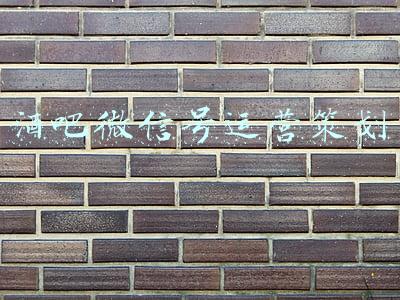 酒吧微信号运营策划